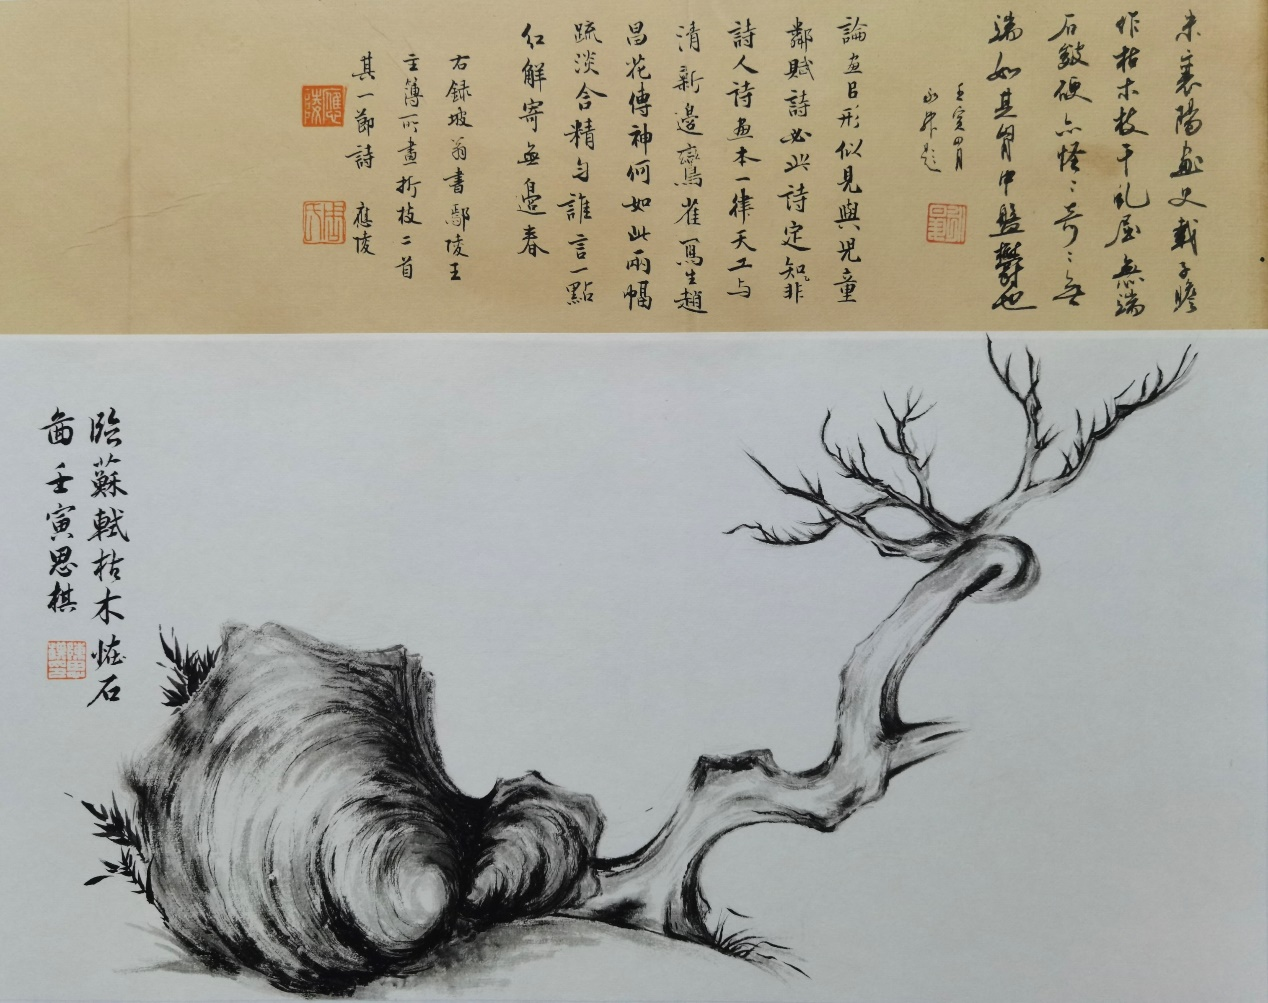 米襄陽畫史載子瞻
作枯木枝干虬屈無端
石皴硬亦怪〻奇〻無
端如其胷中盤鬱也
壬寅四月
論畫㠯形似見與児童
鄰賦詩必此詩定知非
詩人詩画本一律天工与
清新邊鸞雀寫生趙
昌花傳神何如此兩幅
疏淡含精勻誰言一點
红解寄無邊春
右録坡翁書鄢陵王
主簿所畫折枝二首
其一節詩 應陵
臨蘇軾枯木恠石
啚 壬寅思棋